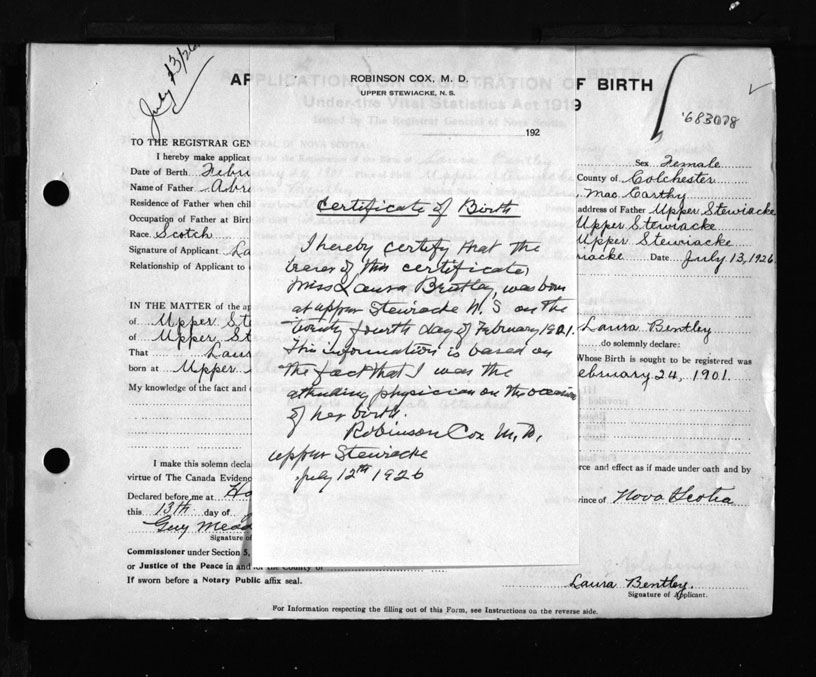 July 13/26
APPLICATION FOR REGISTRATION OF BIRTH
Under the Vital Statistics Act 1919
Issued by The Registrar General of Nova Scotia
'683078
ROBINSON COX, M. D.
UPPER STEWIACKE, N. S.
192
Certificate of Birth
I hereby certify that the
bearer of this certificate,
Miss Laura Bentley, was born
at upper Stewiacke N. S on the
twenty fourth day of February 1901.
This information is based on
the fact that I was the
attending physician on the occasion
of her birth.
Robinson Cox M. D.
upper Stewiacke
July 12th 1926
TO THE REGISTRAR GEN
I hereby make applicat
Sex Female
Date of Birth Febru
County of Colchester
Name of Father Abra
Mac Carthy
Residence of Father when chil
address of Father Upper Stewiacke
Occupation of Father at Birth
Upper Stewiacke
Race. Scotch
Upper Stewiacke
Signature of Applicant La
iacke Date July 13, 1926
Relationship of Applicant to
IN THE MATTER of the ap
of Upper St
Laura Bentley
of Upper St
do solemnly declare:
That Laur
Whose Birth is sought to be registered was
born at Upper
ebruary 24, 1901.
My knowledge of the fact and
I make this solemn decla
rce and effect as if made under oath and by
virtue of The Canada Evidenc
Declared before me at Ha
vince of Nova Scotia
this 13th day of
Guy Mead
Signature of
Commissioner under Section 5,
or Justice of the Peace in and for the County of
If sworn before a Notary Public affix seal.
Laura Bentley
Signature of Applicant.
For Information respecting the filling out of this Form, see Instructions on the reverse side.